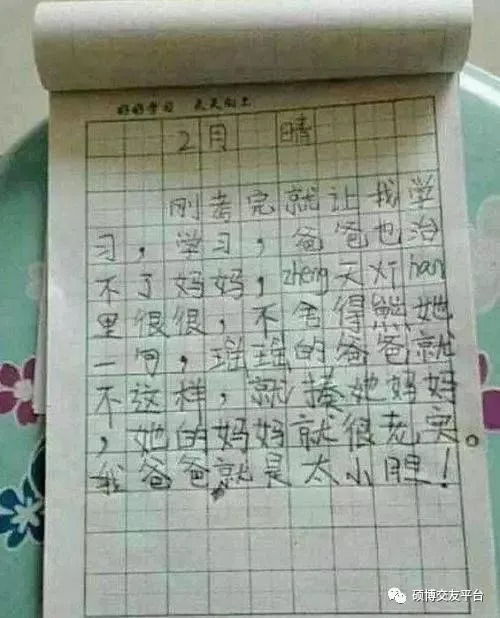 好好学习 天天向上
2月 晴
刚考完就让找学
习，学习，爸爸也治
不了妈妈，zheng天灯han
里很很，不舍得熊她
一句，瑶瑶的爸爸就
不这样，就揍她妈妈
，她的妈妈就很老实。
我爸爸就是太小胆！
硕博交友平台